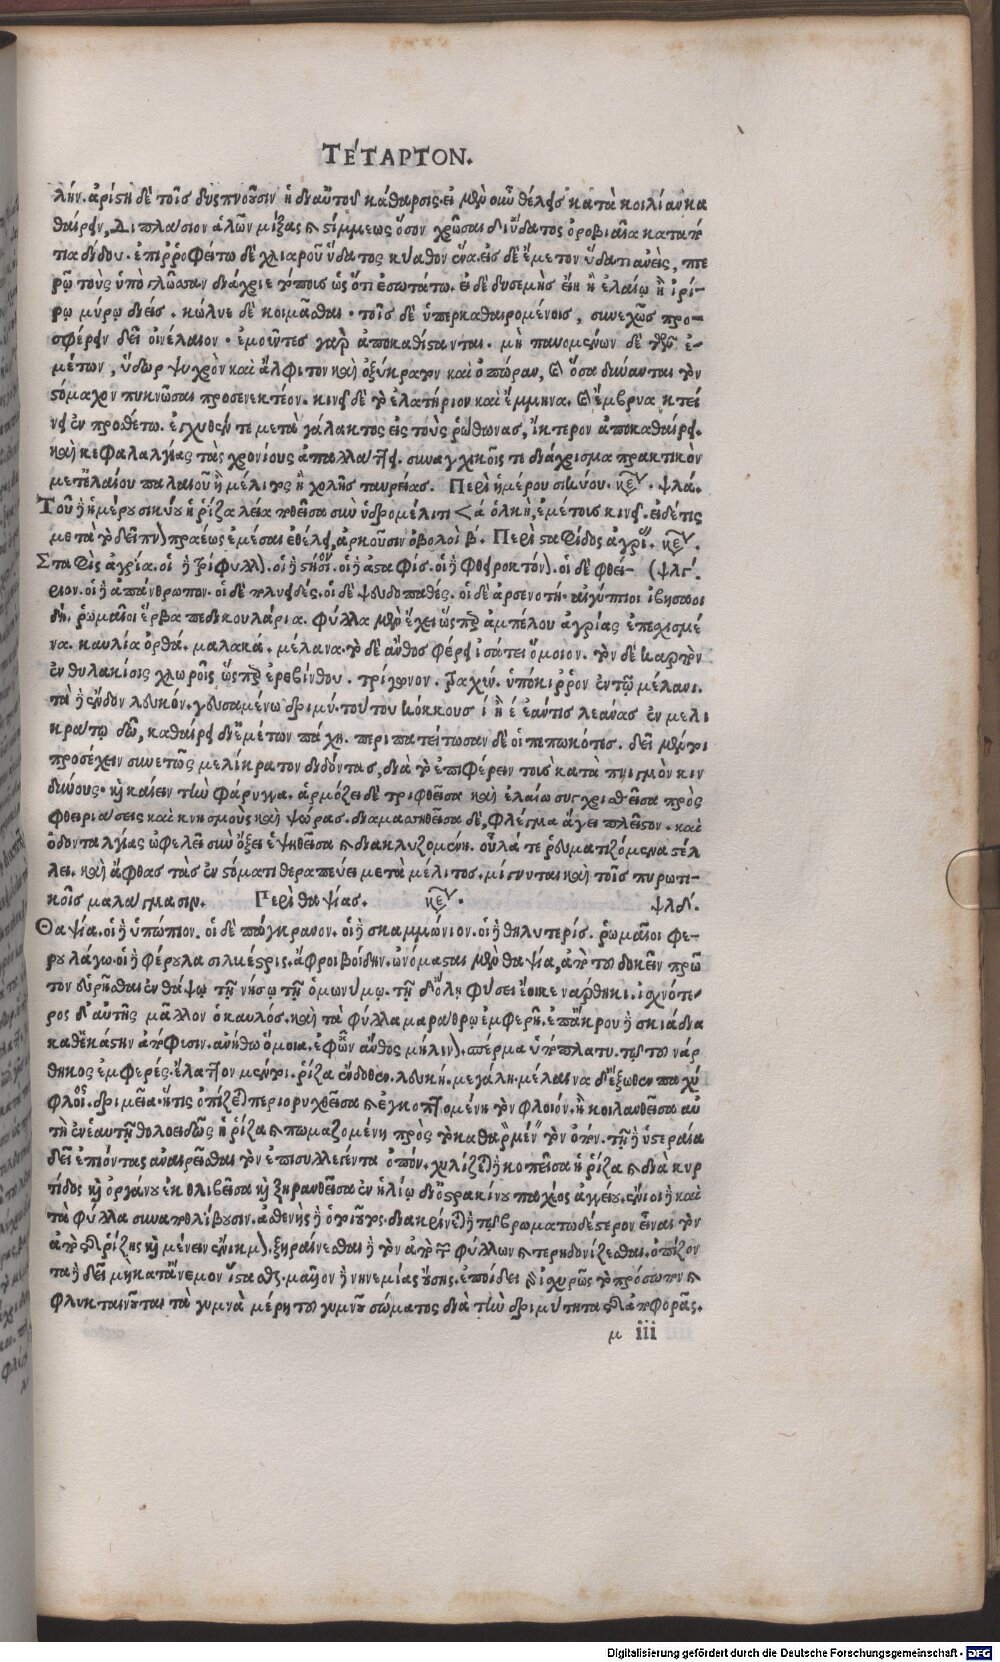 ΤΈΤΑΡΤΟΝ.
λήν. ἀρίστη δὲ τοῖς δυσπνοοῦσιν ἡ δι αὐτοῦ κάθαρσις. εἰ μὲν οὖν θέλεις κατὰ κοιλίαν κα
θαίρειν, διπλάσιον ἁλῶν μίξας καὶ στίμμεως ὅσον χρῶσαι δι ὕδατος ὀροβιαῖα καταπό
τια δίδου. ἐπιρροφείτω δὲ χλιαροῦ ὕδατος κύαθον ἕνα. εἰς δὲ ἔμετον ὕδατι ἀνεὶς, πτε
ρῷ τοὺς ὑπὸ γλῶσσαν διάχριε τόπους ὡς ὅτι ἐσωτάτω. εἰ δὲ δυσεμὴς εἴη ἢ ἐλαίῳ ἢ ἰρί-
ρῳ μύρῳ διεὶς. κώλυε δὲ κοιμᾶσθαι. τοῖς δὲ ὑπερκαθαιρομένοις, συνεχῶς προ-
σφέρειν δεῖ οἰνέλαιον. ἐμοῦντες γὰρ ἀποκαθίστανται. μὴ παυομένων δὲ τῶν ἐ-
μέτων, ὕδωρ ψυχρὸν καὶ ἄλφιτον καὶ ὀξύκρατον καὶ ὀπώραν, καὶ ὅσα δύνανται τὸν
στόμαχον πυκνῶσαι προσενεκτέον. κινεῖ δὲ τὸ ἐλατήριον καὶ ἔμμηνα. καὶ ἔμβρυα κτεί
νει ἐν προσθέτω. ἐγχυθέν τε μετὰ γάλακτος εἰς τοὺς ῥώθωνας, ἴκτερον ἀποκαθαίρει.
καὶ κεφαλαλγίας τὰς χρονίους ἀπαλλάττει. συναγχικοῖς τε διάχρισμα πρακτικὸν
μετ ἐλαίου παλαιοῦ ἢ μέλιτος ἢ χολῆς ταυρείας. Περὶ ἡμέρου σικύου. κεφ. ψλά.
Τοῦ δὲ ἡμέρου σικύου ἡ ῥίζα λεία ποθεῖσα σὺν ὑδρομέλιτι < ά ὁλκὴ, ἐμέτους κινεῖ. εἰ δέ τις
μετὰ τὸ δεῖπνον πραέως ἐμέσαι ἐθέλει, ἀρκοῦσιν ὀβολοὶ β. Περὶ σταφίδος ἀγρί. κεφ.
Σταφὶς ἀγρία. οἱ δὲ τρίφυλλον. οἱ δὲ στήσιον. οἱ δὲ ἀσταφίς. οἱ δὲ φθειροκτόνον. οἱ δὲ φθεί- (ψλγ΄.
ριον. οἱ δὲ ἀπάνθρωπον. οἱ δὲ πολυειδές. οἱ δὲ ψευδοπαθές. οἱ δὲ ἀρσενωτή. αἰγύπτιοι ἰβησαοι
δή. ῥωμαῖοι ἕρβα πεδικουλάρια. φύλλα μὲν ἔχει ὥσπερ ἀμπέλου ἀγρίας ἐπεχισμέ
να. καυλία ὀρθά. μαλακά. μέλανα. τὸ δὲ ἄνθος φέρει ἰσάτει ὅμοιον. τὸν δὲ καρπὸν
ἐν θυλακίοις χλωροῖς ὥσπερ ἐρεβίνθου. τρίγωνον. τραχύν. ὑπόκιρρον ἐν τῷ μέλανι.
τὰ δὲ ἔνδον λευκόν. γευσαμένω δριμύ. τούτου κόκκους ί ἢ έ ἐάν τις λεάνας ἐν μελι
κράτῳ δῷ, καθαίρει δι ἐμέτων πάχη. περιπατείτωσαν δὲ οἱ πεπωκότες. δεῖ μέντοι
προσέχειν συνετῶς μελίκρατον διδόντας, διὰ τὸ ἐπιφέρειν τοὺς κατὰ πνιγμὸν κιν
δύνους. καὶ καίειν τὴν φάρυγγα. ἁρμόζει δὲ τριφθεῖσα καὶ ἐλαίω συγχρισθεῖσα πρὸς
φθειριάσεις καὶ κνησμοὺς καὶ ψώρας. διαμασηθεῖσα δὲ, φλέγμα ἄγει πλεῖστον. καὶ
ὀδονταλγίας ὠφελεῖ σὺν ὄξει ἑψηθεῖσα καὶ διακλυζομένη. οὖλά τε ῥευματιζόμενα στέλ
λει. καὶ ἄφθας τὰς ἐν στόματι θεραπεύει μετὰ μέλιτος. μίγνυται καὶ τοῖς πυρωτι-
κοῖς μαλάγμασιν. Περὶ θαψίας. κεφ. ψλδ΄.
Θαψία. οἱ δὲ ὑπώπιον. οἱ δὲ πάγκρανον. οἱ δὲ σκαμμώνιον. οἱ δὲ θηλυπτερίς. ῥωμαῖοι φε-
ρουλάγω. οἱ δὲ φέρουλα σιλυέστρις. ἄφροι βοίδην. ὠνόμασται μὲν θαψία, ἀπὸ τοῦ δοκεῖν πρῶ
τον εὑρῆσθαι ἐν θάψῳ τῇ νήσῳ τῇ ὁμωνύμῳ. τῇ δ ὅλῃ φύσει ἔοικε νάρθηκι. ἰσχνότε-
ρος δ αὐτῆς μᾶλλον ὁ καυλός. καὶ τὰ φύλλα μαράθρῳ ἐμφερῆ. ἐπ ἄκρου δὲ σκιάδια
καθ ἑκάστην ἀπόφυσιν. ἀνήθῳ ὅμοια. ἐφ ὧν ἄνθος μήλινον. σπέρμα ὑπόπλατυ. τῷ τοῦ νάρ
θηκος ἐμφερές. ἔλαττον μέντοι. ῥίζα ἔνδοθεν. λευκή. μεγάλη. μέλαινα δ ἔξωθεν παχύ
φλοιος. δριμεῖα. ἥτις ὀπίζεται περιορυχθεῖσα καὶ ἐγκοπτομένη τὸν φλοιόν. ἢ κοιλανθεῖσα αὐ
τὴ ἐν ἑαυτῇ θολοειδῶς ἡ ῥίζα καὶ πωμαζομένη πρὸς τὸ καθαρὸν μένειν τὸν ὀπόν. τῇ δὲ ὑστεραία
δεῖ ἐπιόντας ἀναιρεῖσθαι τὸν ἐπισυλλεγέντα ὀπόν. χυλίζεται δὲ κοπεῖσα ἡ ῥίζα καὶ διὰ κυρ
τίδος καὶ ὀργάνου ἐκθλιβεῖσα καὶ ξηρανθεῖσα ἐν ἡλίῳ δι ὀστρακίνου παχέος ἀγγείου. ἔνιοι δὲ καὶ
τὰ φύλλα συναποθλίβουσιν. ἀσθενὴς δὲ ὁ τοιοῦτος. διακρίνεται δὲ τῷ βρωματωδέστερον εἶναι τὸν
ἀπὸ τῆς ῥίζης καὶ μένειν ἔνικμον. ξηραίνεσθαι δὲ τὸν ἀπὸ τῶν φύλλων καὶ τερηδονίζεσθαι. ὀπίζον
τα δὲ δεῖ μὴ κατ ἄνεμον ἵστασθαι. μᾶλλον δὲ νηνεμίας οὔσης. ἐποίδει γὰρ ἰσχυρῶς τὸ πρόσωπον καὶ
φλυκταινοῦται τὰ γυμνὰ μέρη τοῦ γυμνοῦ σώματος διὰ τὴν δριμύτητα τῆς ἀποφορᾶς.
μ iii
Digitalisierung gefördert durch die Deutsche Forschungsgemeinschaft - DFG